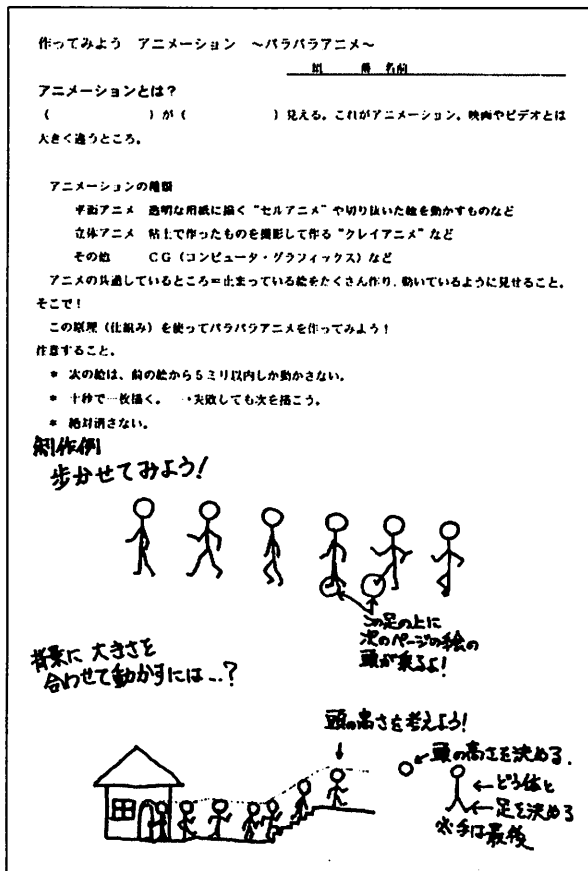 作ってみよう　アニメーション　～パラパラアニメ～
組　　番　名前
アニメーションとは？
（　　　　　　　　）が（　　　　　　　）見える。これがアニメーション。映画やビデオとは
大きく違うところ。
アニメーションの種類
平面アニメ　透明な用紙に描く“セルアニメ”や切り抜いた絵を動かすものなど
立体アニメ　粘土で作ったものを撮影して作る“クレイアニメ”など
その他　　　CG（コンピュータ・グラフィックス）など
アニメの共通しているところ＝止まっている絵をたくさん作り、動いているように見せること。
そこで！
この原理（仕組み）を使ってパラパラアニメを作ってみよう！
注意すること。
＊　次の絵は、前の絵から５ミリ以内しか動かさない。
＊　十秒で一枚描く。　→失敗しても次を描こう。
＊　絶対消さない。
制作例
歩かせてみよう！
この足の上に
次のページの絵の
頭が乗るよ！
背景に大きさを
合わせて動かすには…？
頭の高さを考えよう！
頭の高さを決める.
どう体と
足を決める
※手は最後